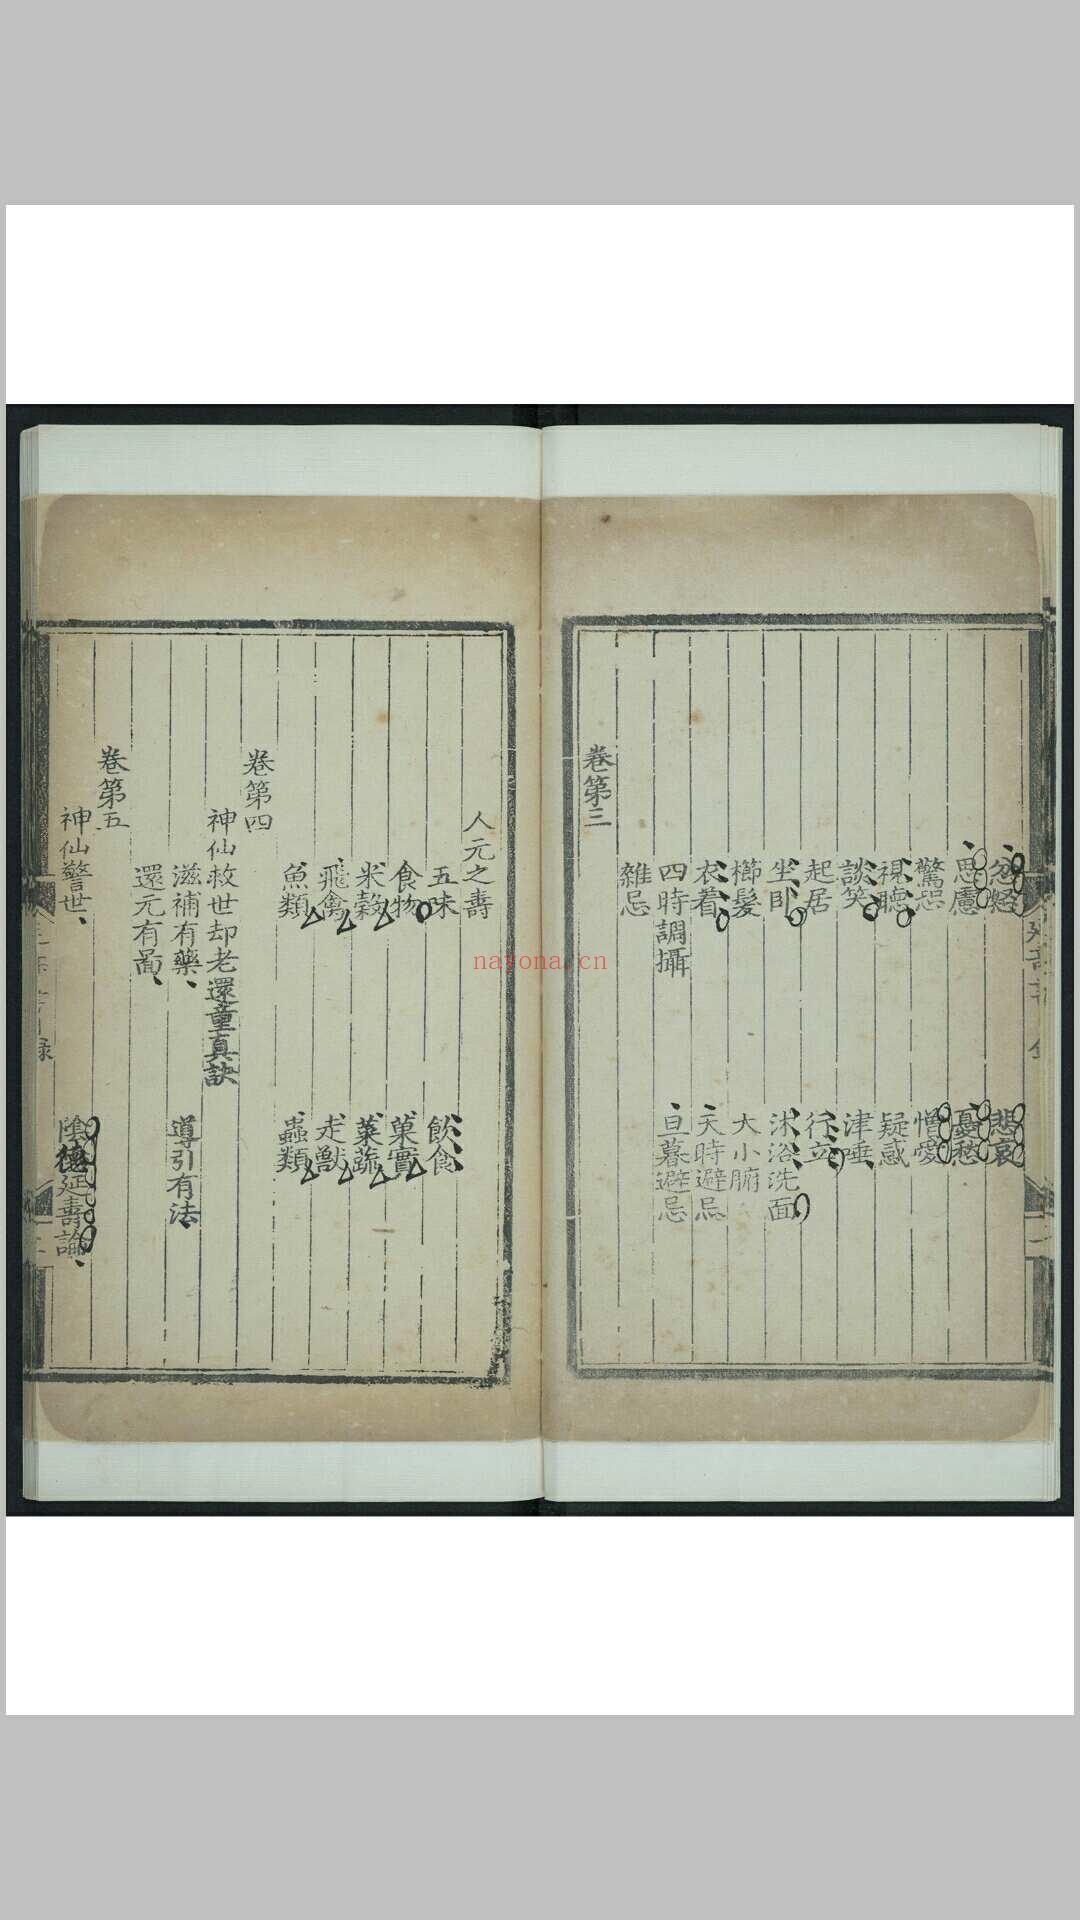 忿怒 悲哀
思慮 憂愁
驚恐 憎愛
視聽 疑惑
談笑 津唾
起居 行立
坐卧 沐浴洗面
櫛髮 大小腑
衣着 天時避忌
四時調攝 旦暮避忌
雜忌
卷第三
人元之壽
五味 飲食
食物 菓實
米穀 菜蔬
飛禽 走獸
魚類 蟲類
卷第四
神仙救世却老還童真訣
滋補有藥 導引有法
還元有啚
卷第五
神仙警世 陰德延壽論
nayona.cn